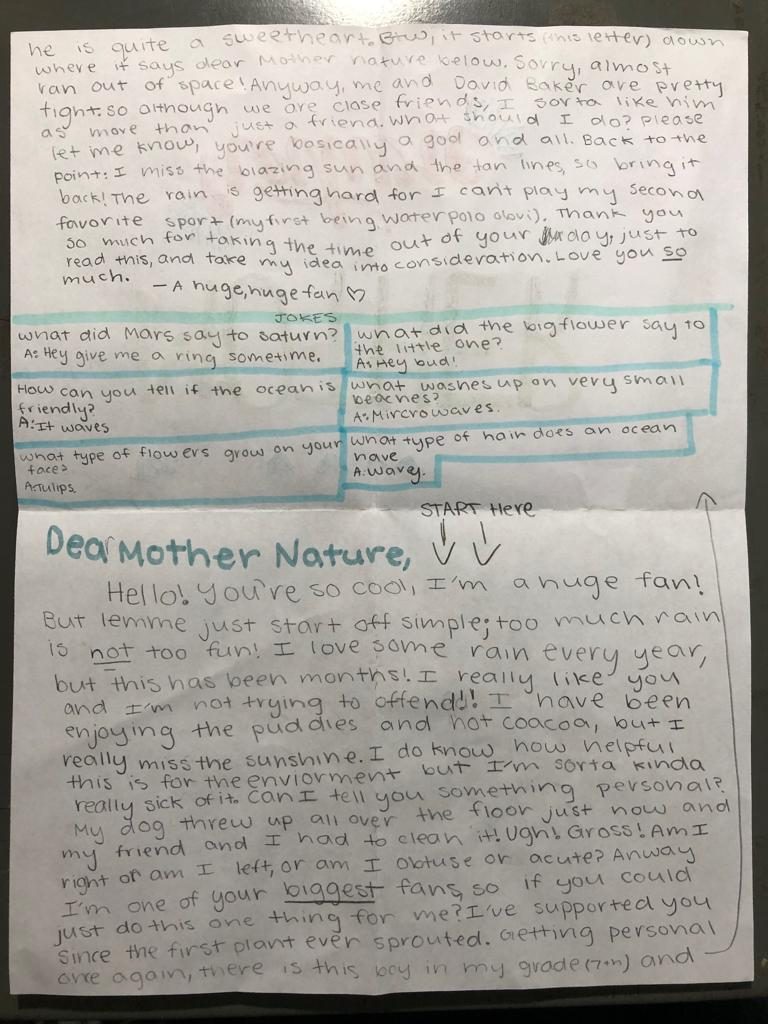 he is quite a sweetheart. Btw, it starts (this letter) down
where it says dear Mother nature below. Sorry, almost
ran out of space! Anyway, me and David Baker are pretty
tight. so although we are close friends, I sorta like him
as more than just a friend. What should I do? Please
let me know, you're basically a god and all. Back to the
point: I miss the blazing sun and the tan lines, so bring it
back! The rain is getting hard for I can't play my second
favorite sport (my first being water polo obvi). Thank you
so much for taking the time out of your day, just to
read this, and take my idea into consideration. Love you so
much. — A huge, huge fan ♡
JOKES
what did Mars say to saturn?
A: Hey give me a ring sometime.
what did the big flower say to
the little one?
A: Hey bud!
How can you tell if the ocean is
friendly?
A: It waves
what washes up on very small
beaches?
A: Mircrowaves.
what type of flowers grow on your
face?
A: Tulips.
what type of hair does an ocean
have
A: wavey.
START Here
Dear Mother Nature,
Hello! You're so cool, I'm a huge fan!
But lemme just start off simple; too much rain
is not too fun! I love some rain every year,
but this has been months! I really like you
and I'm not trying to offend!! I have been
enjoying the puddles and hot coacoa, but I
really miss the sunshine. I do know how helpful
this is for the enviorment but I'm sorta kinda
really sick of it. Can I tell you something personal?
My dog threw up all over the floor just now and
my friend and I had to clean it! Ugh! Gross! Am I
right or am I left, or am I obtuse or acute? Anway
I'm one of your biggest fans, so if you could
just do this one thing for me? I've supported you
since the first plant ever sprouted. Getting personal
once again, there is this boy in my grade (7th) and